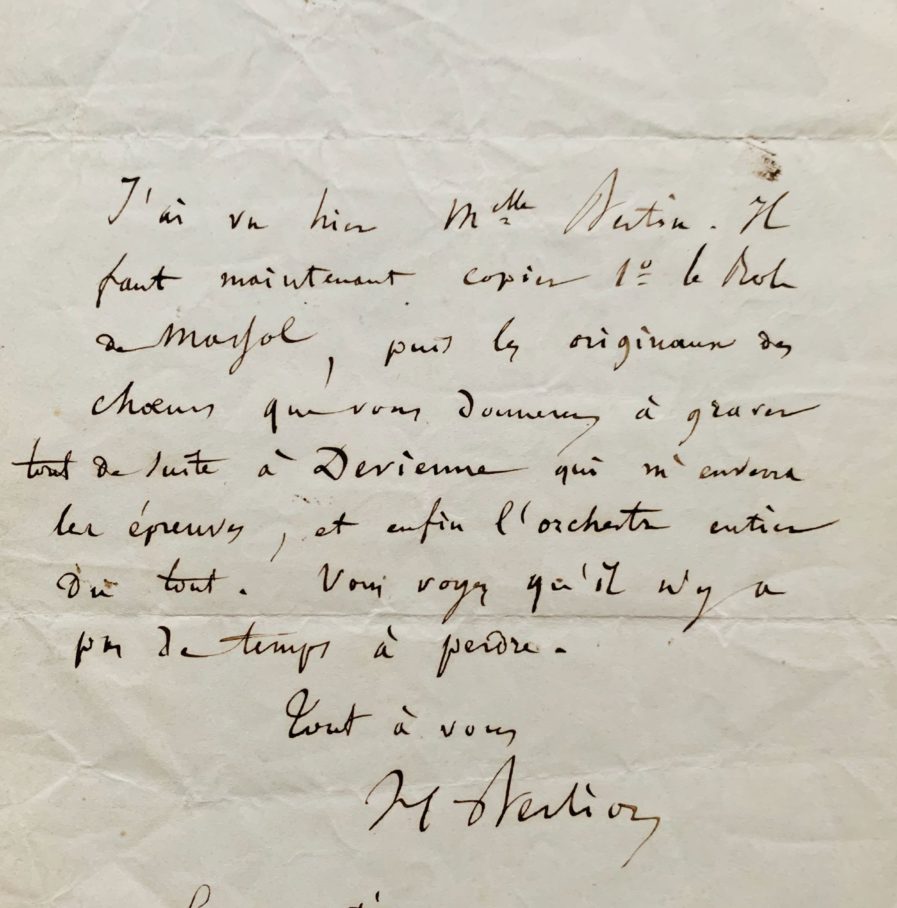 J'ai vu hier Melle Bertin. Il
faut maintenant copier 1º le Role
de Massol, puis les originaux des
chœurs que vous donnerez à graver
tout de suite à Devienne qui m'enverra
les épreuves, et enfin l'orchestre entier
du tout. Vous voyez qu'il n'y a
pas de temps à perdre.
Tout à vous
H Berlioz